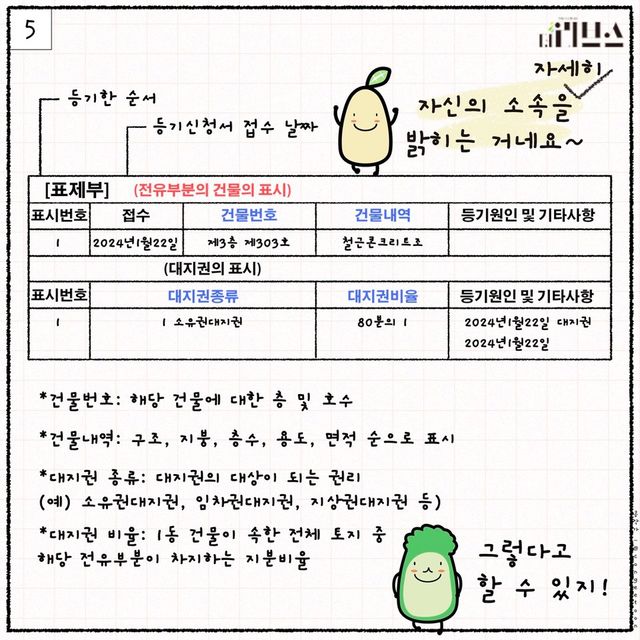 5
더리브스
자세히
등기한 순서
등기신청서 접수 날짜
자신의 소속을
밝히는 거네요~
[표제부] (전유부분의 건물의 표시)
표시번호 접수 건물번호 건물내역 등기원인 및 기타사항
1 2024년1월22일 제3층 제303호 철근콘크리트조
(대지권의 표시)
표시번호 대지권종류 대지권비율 등기원인 및 기타사항
1 1 소유권대지권 80분의 1 2024년1월22일 대지권
2024년1월22일
*건물번호: 해당 건물에 대한 층 및 호수
*건물내역: 구조, 지붕, 층수, 용도, 면적 순으로 표시
*대지권 종류: 대지권의 대상이 되는 권리
(예) 소유권대지권, 임차권대지권, 지상권대지권 등)
*대지권 비율: 1동 건물이 속한 전체 토지 중
해당 전유부분이 차지하는 지분비율
그렇다고
할 수 있지!